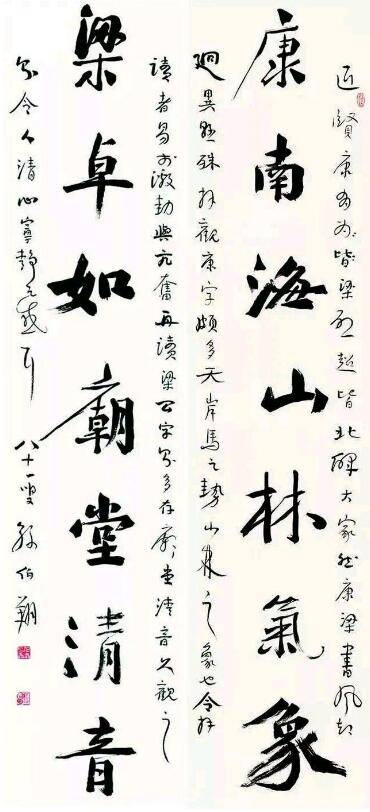 近賢康有為梁啟超皆北碑大家然康梁書風却
康南海山林氣象
迥異殊觀康字頗多天岸馬之勢山林之象也令
讀者易於激動與亢奮再讀梁公字則多存廟堂清音久觀之
梁卓如廟堂清音
則令人清心寧靜之感耳 八十一叟 孫伯翔